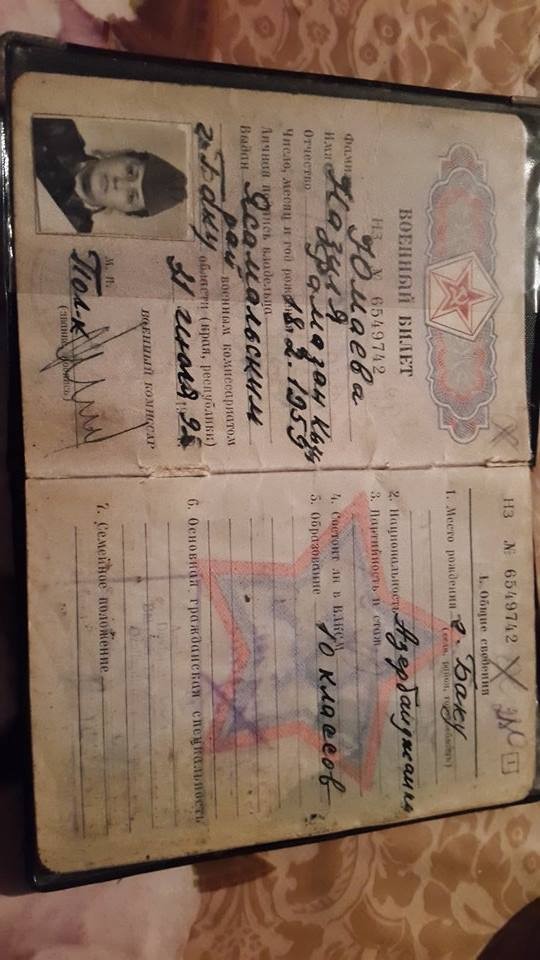 ВОЕННЫЙ БИЛЕТ
НЗ № 6549742
Юмаева
Имя Назиля
Отчество Рамазан Кызы
Число, месяц и год рождения 18.2.1959
Личная подпись владельца
Выдан Ясамальским
рай военным комиссариатом
г. Баку области (края, республики)
21 июля
ВОЕННЫЙ КОМИССАР
М. П.
Пол-к
НЗ № 6549742
1
I. Общие сведения
1. Место рождения г. Баку
2. Национальность Азербайджанка
3. Партийность и стаж
4. Состоит ли в ВЛКСМ
5. Образование 10 классов
6. Основная гражданская специальность
7. Семейное положение